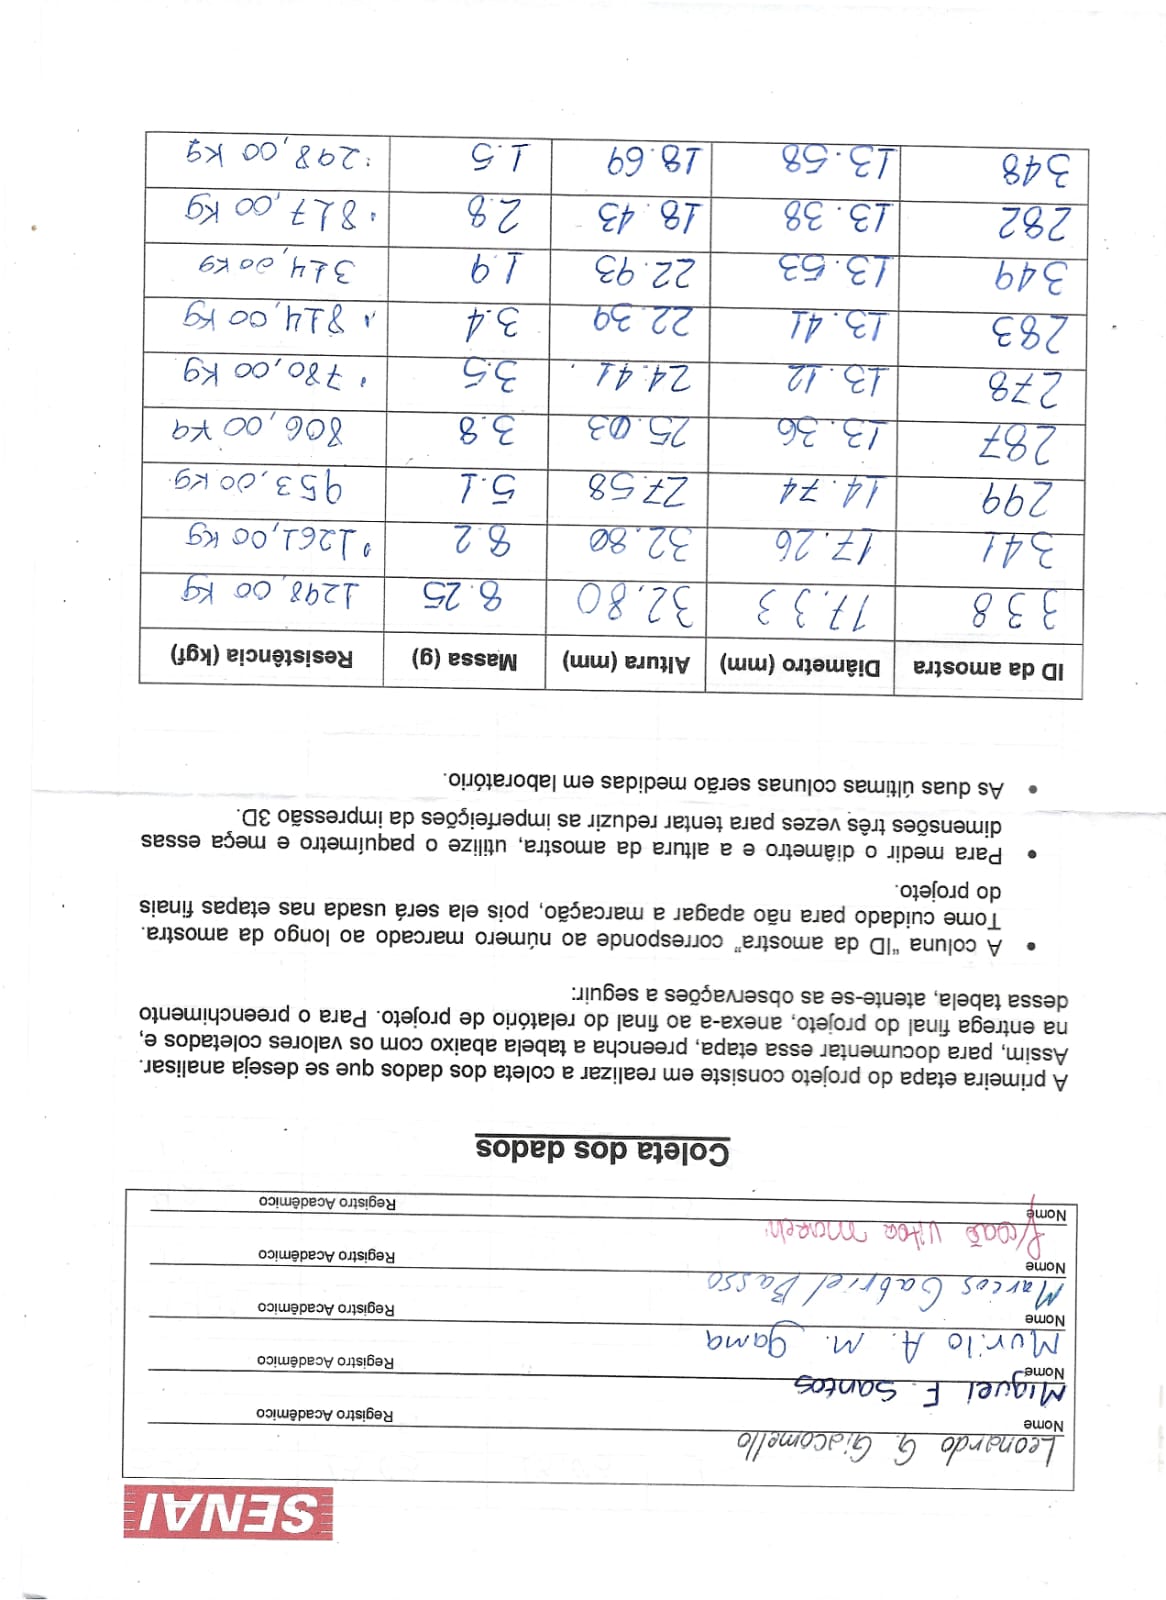 SENAI
Leonardo G. Giacomello
Nome Registro Acadêmico
Miguel F. Santos
Nome Registro Acadêmico
Murilo A. M. gama
Nome Registro Acadêmico
Marcos Gabriel Basso
Nome Registro Acadêmico
Vitor
Nome Registro Acadêmico
Coleta dos dados
A primeira etapa do projeto consiste em realizar a coleta dos dados que se deseja analisar.
Assim, para documentar essa etapa, preencha a tabela abaixo com os valores coletados e,
na entrega final do projeto, anexa-a ao final do relatório de projeto. Para o preenchimento
dessa tabela, atente-se as observações a seguir:
• A coluna “ID da amostra” corresponde ao número marcado ao longo da amostra.
Tome cuidado para não apagar a marcação, pois ela será usada nas etapas finais
do projeto.
• Para medir o diâmetro e a altura da amostra, utilize o paquímetro e meça essas
dimensões três vezes para tentar reduzir as imperfeições da impressão 3D.
• As duas últimas colunas serão medidas em laboratório.
ID da amostra Diâmetro (mm) Altura (mm) Massa (g) Resistência (kgf)
338 17.33 32.80 8.25 1298,00 Kg
341 17.26 32.80 8.2 1261,00 Kg
299 14.74 27.58 5.1 953,00 Kg
287 13.36 25.03 3.8 806,00 Kg
278 13.12 24.41 3.5 780,00 Kg
283 13.41 22.39 3.4 814,00 Kg
349 13.53 22.93 1.9 314,00 Kg
282 13.38 18.43 2.8 817,00 Kg
348 13.58 18.69 1.5 298,00 Kg